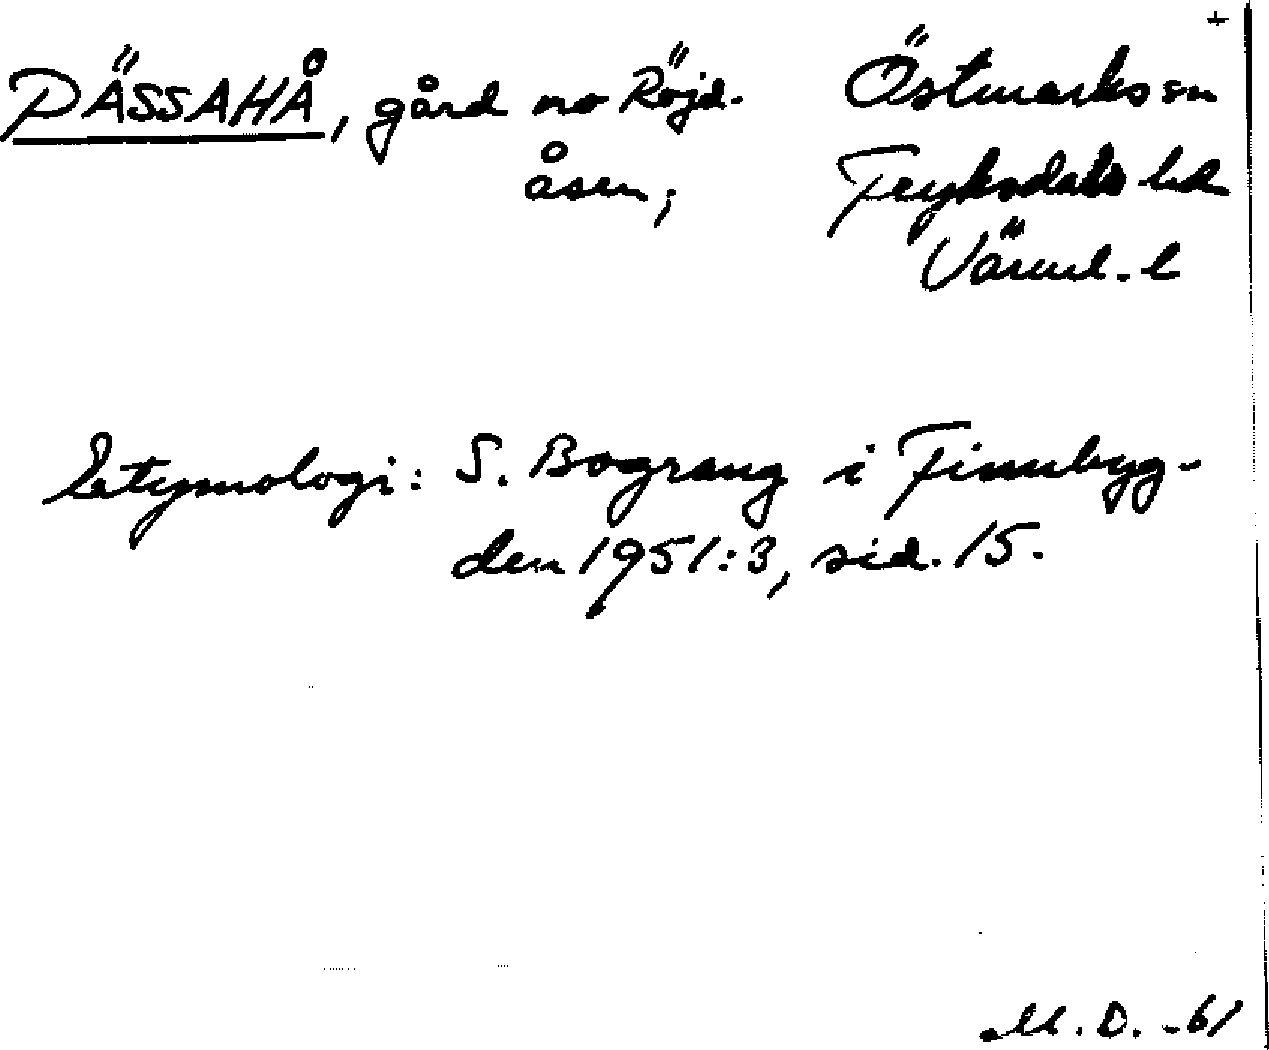 +
PÄSSAHÅ, gård no Röjd- Östmarks sn
åsen; Fryksdals hd
Värml. l
Etymologi: S. Bograng i Finnbyg-
den 1951:3, sid. 15.
M. D. -61